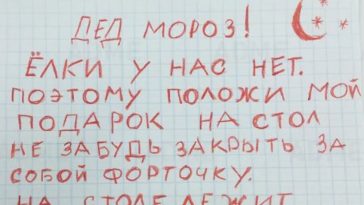 ДЕД МОРОЗ!
ЁЛКИ У НАС НЕТ.
ПОЭТОМУ ПОЛОЖИ МОЙ
ПОДАРОК НА СТОЛ
НЕ ЗАБУДЬ ЗАКРЫТЬ ЗА
СОБОЙ ФОРТОЧКУ.
НА СТОЛЕ ЛЕЖИТ